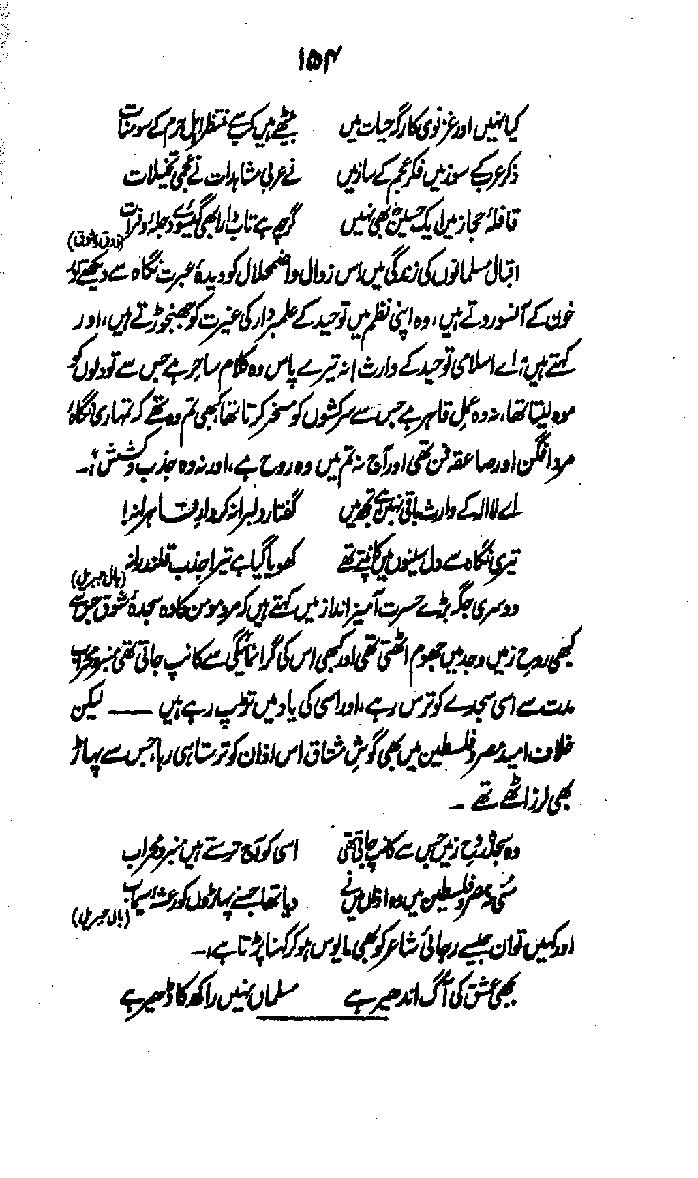 ۱۵۴
کیا نہیں اور غزنوی کارگہ حیات میں بیٹھے ہیں کب سے منتظر اہل حرم کے سومنات
ذکر عرب کے سوز میں فکر عجم کے ساز میں نے عربی مشاہدات نے عجمی تخیلات
قافلۂ حجاز میں ایک حسین بھی نہیں گرچہ ہے تاب دار ابھی گیسوئے دجلہ و فرات
(ذوق و شوق)
اقبال مسلمانوں کی زندگی میں اس زوال و اضمحلال کو دیدۂ عبرت نگاہ سے دیکھتے تو
خون کے آنسو روتے ہیں، وہ اپنی نظم میں توحید کے علمبردار کی غیرت کو جھنجوڑتے ہیں، اور
کہتے ہیں: اے اسلامی توحید کے وارث! نہ تیرے پاس وہ کلام ساحر ہے جس سے تو دلوں کو
موہ لیتا تھا، نہ وہ عمل قاہر ہے جس سے سرکشوں کو مسخر کرتا تھا کبھی تم وہ تھے کہ تمہاری نگاہ
مرد افگن اور صاعقہ فن تھی اور آج نہ تم میں وہ روح ہے، اور نہ وہ جذب و کشش:۔
اے لا الہ کے وارث باقی نہیں ہے تجھ میں گفتار دلبرانہ کردار قاہرانہ!
تیری نگاہ سے دل سینوں میں کانپتے تھے کھویا گیا ہے تیرا جذب قلندرانہ
(بال جبریل)
دوسری جگہ بڑے حسرت آمیز انداز میں کہتے ہیں کہ مرد مومن کا وہ سجدۂ شوق جس سے
کبھی روح زمیں وجد میں جھوم اٹھتی تھی اور کبھی اس کی گرانمائیگی سے کانپ جاتی تھی منبر و محراب
مدت سے اسی سجدے کو ترس رہے، اور اسی کی یاد میں تڑپ رہے ہیں —— لیکن
خلاف امید مصر و فلسطین میں بھی گوش مشتاق اس اذان کو ترستا ہی رہا، جس سے پہاڑ
بھی لرز اٹھے تھے ۔
وہ سجدہ روح زمیں جس سے کانپ جاتی تھی اسی کو آج ترستے ہیں منبر و محراب
سنی نہ مصر و فلسطین میں وہ اذاں میں نے دیا تھا جس نے پہاڑوں کو رعشۂ سیماب
(بال جبریل)
اور کہیں تو ان جیسے رجائی شاعر کو بھی مایوس ہو کر کہنا پڑتا ہے:۔
بجھی عشق کی آگ اندھیر ہے مسلماں نہیں راکھ کا ڈھیر ہے